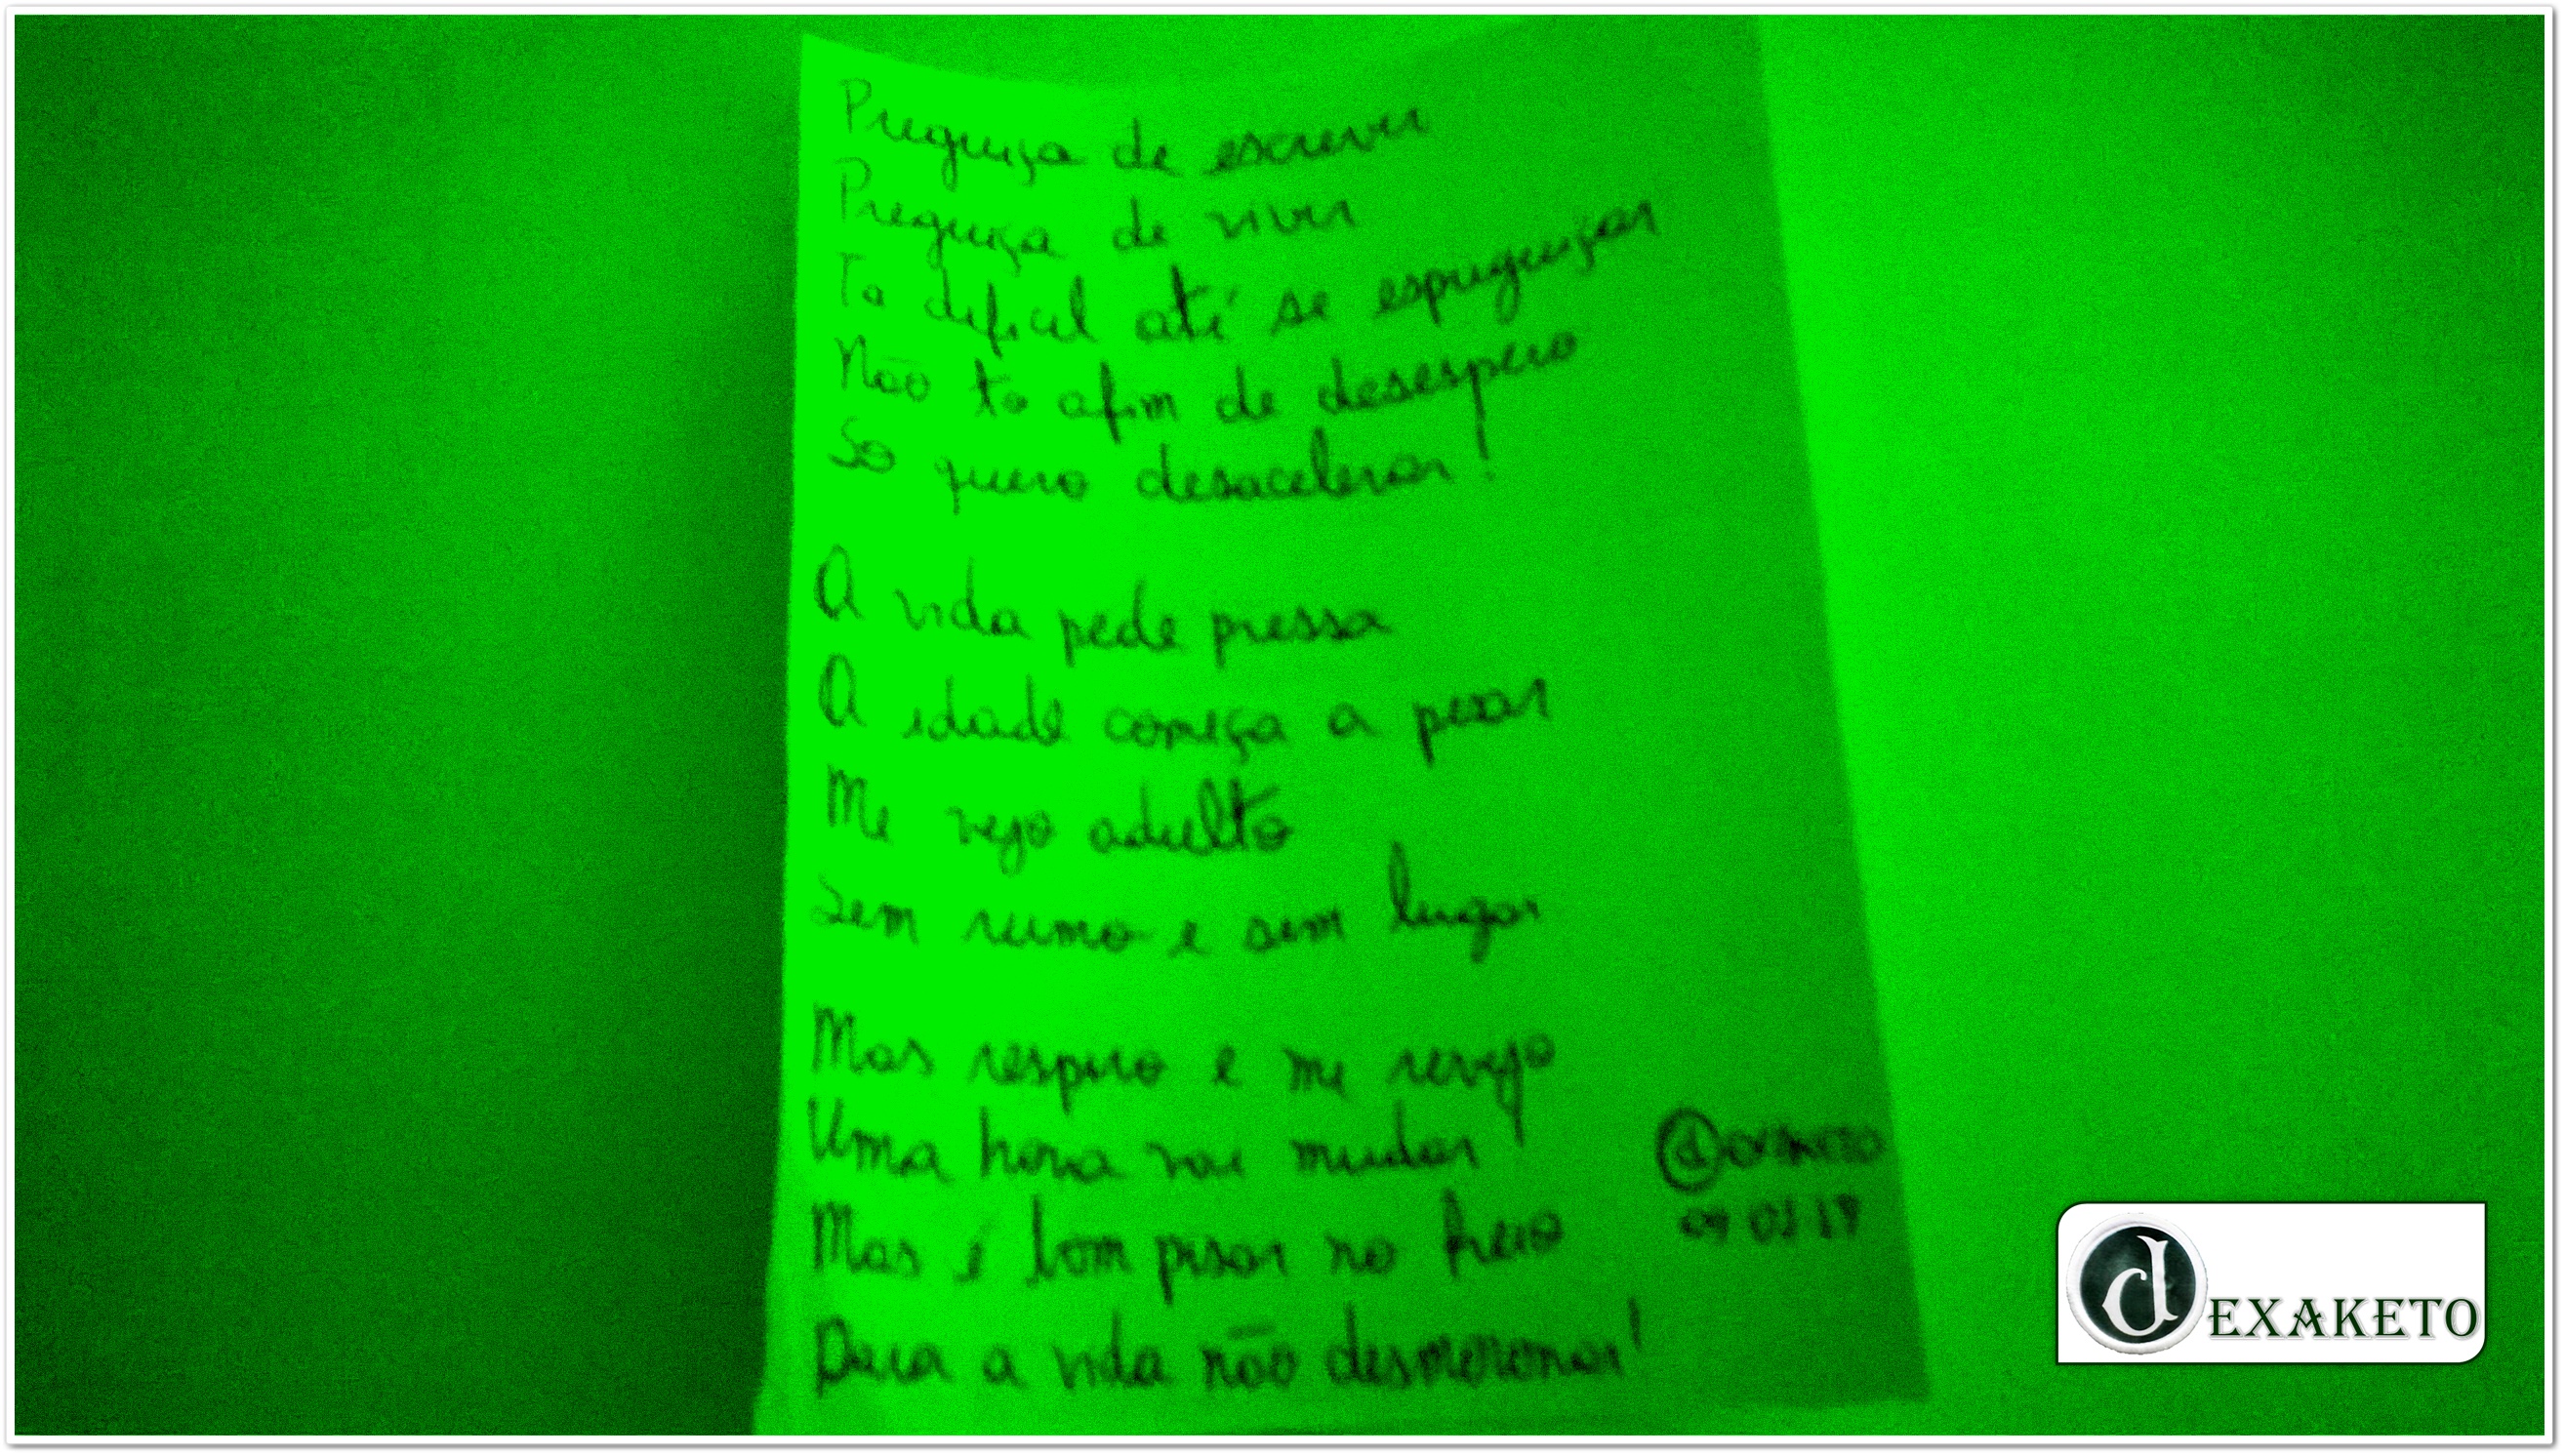 Preguiça de escrever
Preguiça de viver
To dificil até se espreguiçar
Não to afim de desespero
So quero desacelerar!
A vida pede pressa
A idade começa a pesar
Me vejo adulto
Sem rumo e sem lugar
Mas respiro e me revejo
Uma hora vai mudar
Mas é bom pisar no freio
Para a vida não desmoronar!
@DEXAKETO
dEXAKETO